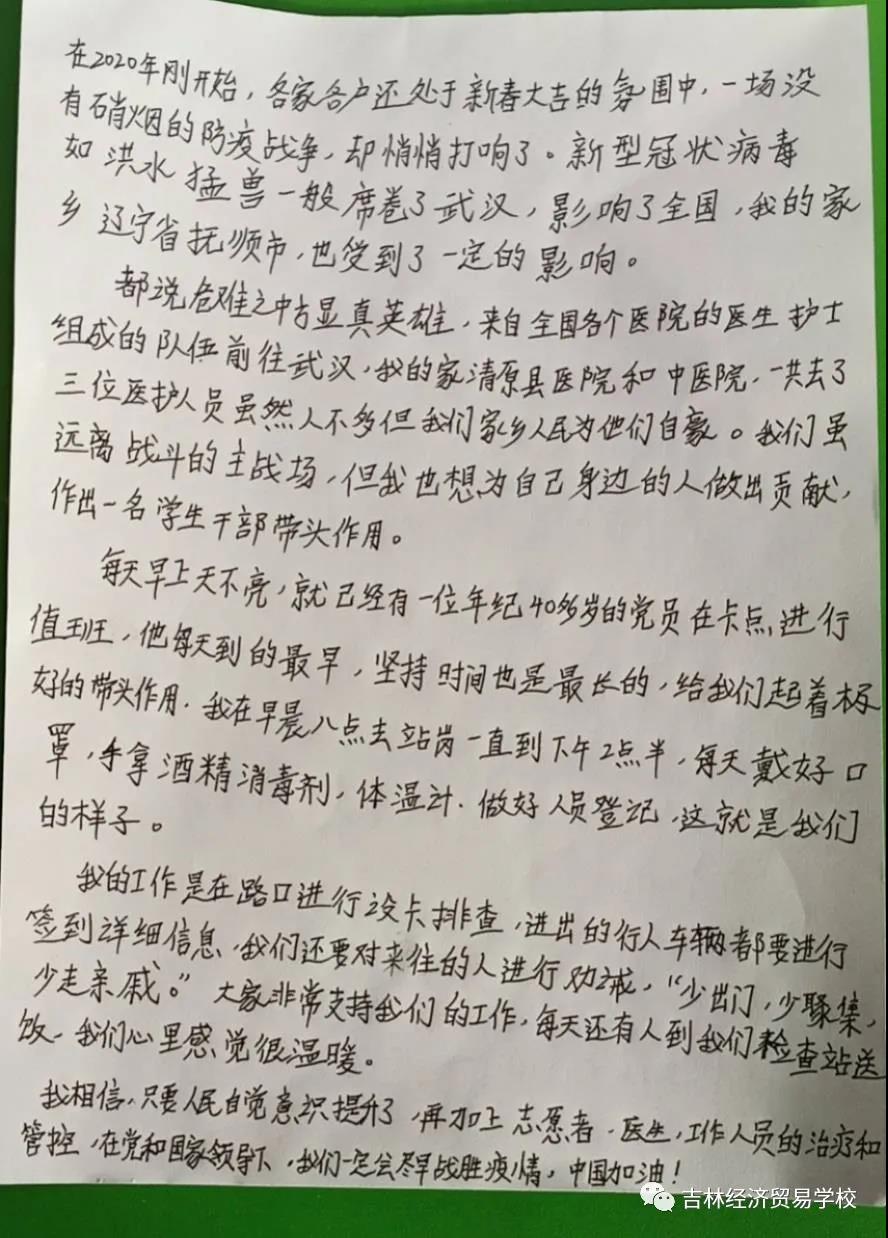 在2020年刚开始，各家各户还处于新春大吉的氛围中，一场没
有硝烟的防疫战争，却悄悄打响了。新型冠状病毒
如洪水猛兽一般席卷了武汉，影响了全国，我的家
乡辽宁省抚顺市，也受到了一定的影响。
都说危难之中方显真英雄，来自全国各个医院的医生护士
组成的队伍前往武汉，我的家清原县医院和中医院，一共去了
三位医护人员虽然人不多但我们家乡人民为他们自豪。我们虽
远离战斗的主战场，但我也想为自己身边的人做出贡献，
作出一名学生干部带头作用。
每天早上天不亮，就已经有一位年纪40多岁的党员在卡点进行
值班，他每天到的最早，坚持时间也是最长的，给我们起着极
好的带头作用．我在早晨八点去站岗一直到下午2点半，每天戴好口
罩，手拿酒精消毒剂，体温计．做好人员登记，这就是我们
的样子。
我的工作是在路口进行设卡排查，进出的行人车辆都要进行
签到详细信息，我们还要对来往的人进行劝诫，“少出门，少聚集，
少走亲戚。”大家非常支持我们的工作，每天还有人到我们检查站送
饭．我们心里感觉很温暖。
我相信，只要人民自觉意识提升了，再加上志愿者．医生，工作人员的治疗和
管控，在党和国家领导下，我们一定会尽早战胜疫情，中国加油！
吉林经济贸易学校